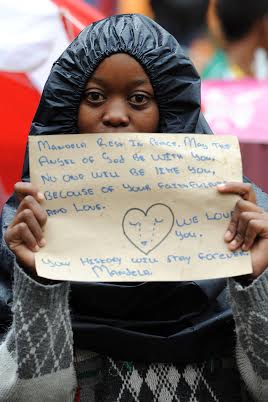 Mandela Rest in Peace. May the
Angel of God be with you,
No one will be like you,
because of your faithfulness
and Love.
We Love
you.
You History will stay forever
Mandela